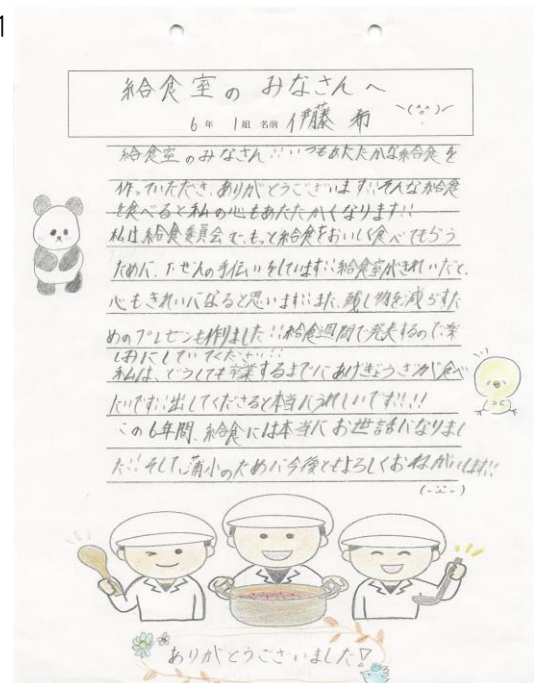 1
給食室の みなさんへ
6年 1組 名前 伊藤 希 ヽ(^^)ノ
給食室のみなさん!!いつもあたたかな給食を
作っていただき、ありがとうございます!!そんな給食
を食べると私の心もあたたかくなります!!
私は給食委員会で、もっと給食をおいしく食べてもらう
ために、の手伝いをしています!!給食室がきれいだと、
心もきれいになると思います!!また、残し物を減らすた
めのプレゼンも作りました!!給食週間で発表するので楽
しみにしていてください!!
私は、どうしても卒業するまでにあげぎょうざが食べ
たいです!!出してくださると本当にうれしいです!!!
この6年間、給食には本当にお世話になりまし
た!!そして、蒲小のために今後ともよろしくおねがいします!!
ありがとうございました♡